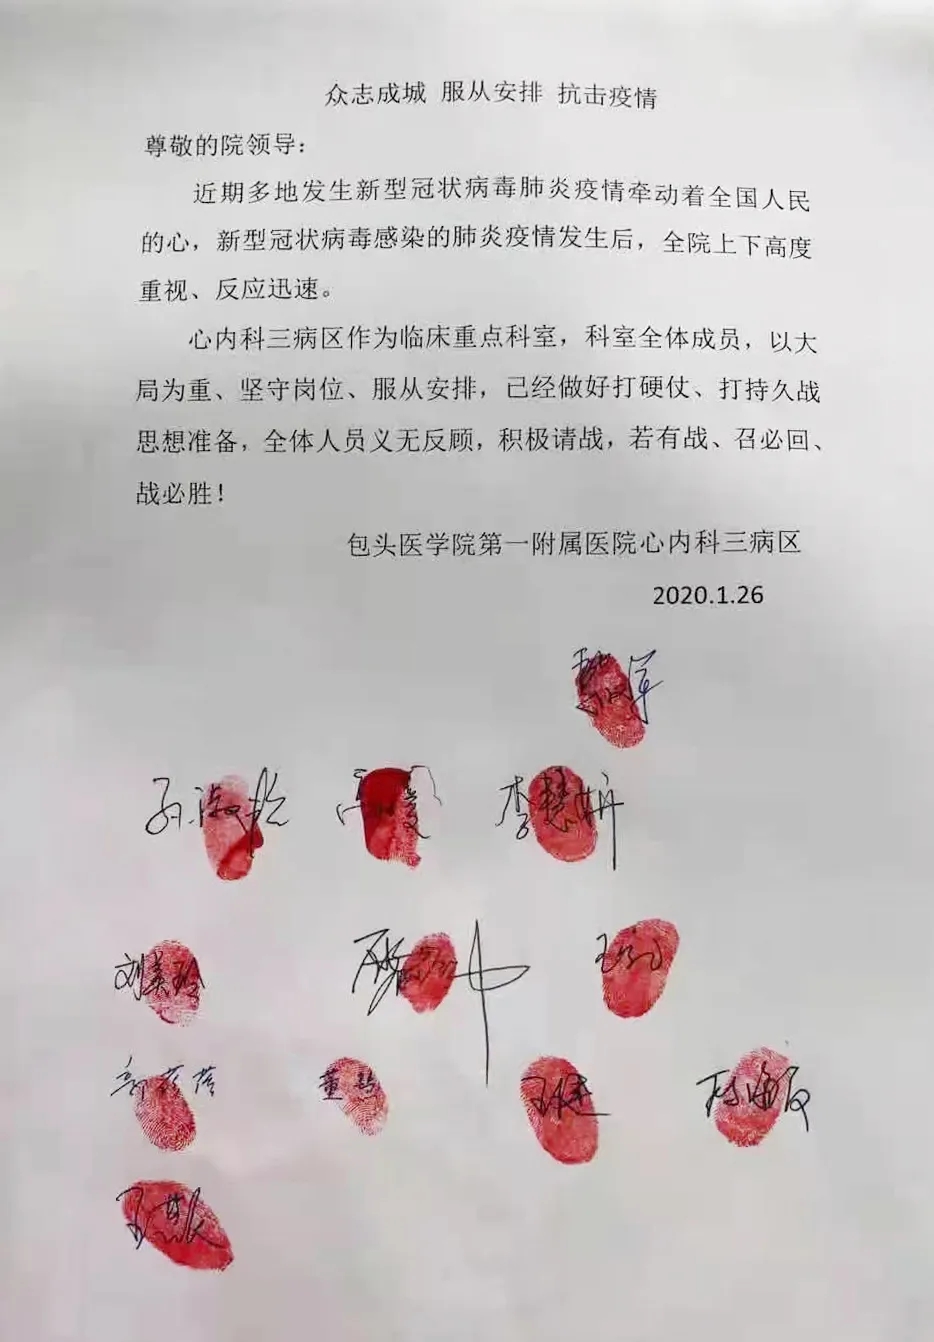 众志成城 服从安排 抗击疫情
尊敬的院领导：
近期多地发生新型冠状病毒肺炎疫情牵动着全国人民
的心，新型冠状病毒感染的肺炎疫情发生后，全院上下高度
重视、反应迅速。
心内科三病区作为临床重点科室，科室全体成员，以大
局为重、坚守岗位、服从安排，已经做好打硬仗、打持久战
思想准备，全体人员义无反顾，积极请战，若有战、召必回、
战必胜！
包头医学院第一附属医院心内科三病区
2020.1.26
李慧妍
刘美玲
王健